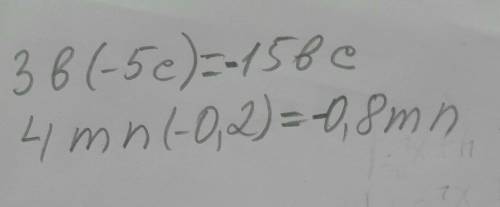 3в(-5с)=-15вс
4mn(-0,2)=-0,8mn